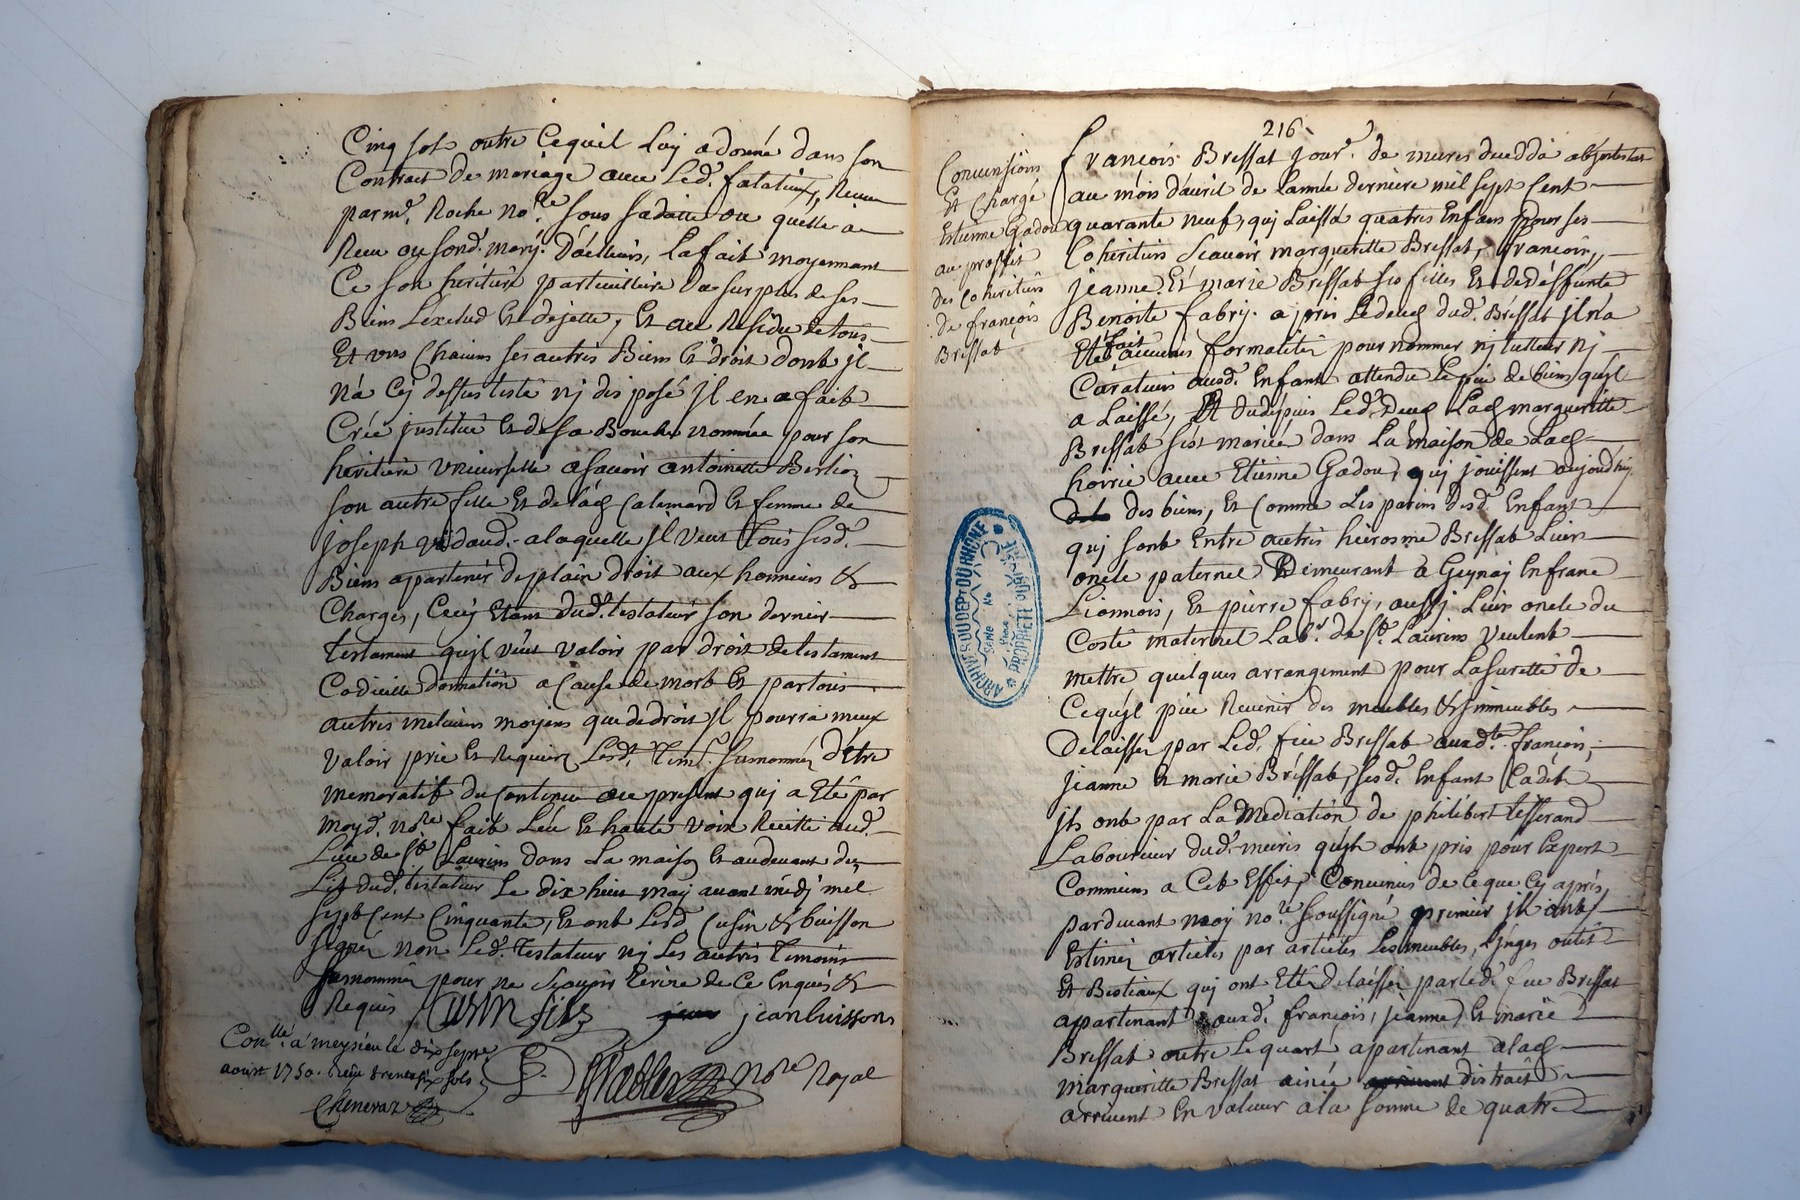 Cinq sols outre Cequil Luy adonné dans son
Contract de mariage avec Led. fatalieux, Receu
par me. Roche nore. sous sadatte ou quelle à
Receu ou fond. mary. D'ailleurs, La fait moyennant
Ce son heritiere particulliere Du surplus de ses
Biens Lexclud Et dejette, Et au Residu de tous
Et uns Chacuns ses autres Biens Et droit dont jl
Na Cy dessus testé nj disposé jl en a fait
Créé justitué Et de sa Bouche nommée pour son
heritiere universelle asavoir antoinette Berlioz
son autre fille Et de lad. Calemard Et femme de
joseph vidaud. alaquelle jl veut Tous sesd.
Biens appartenir deplain droit aux honneurs &
Charges, Cecy Etant dud. testateur son dernier
testament qujl veut valoir par droit de testament
Codicille donnation a Cause de mort Et partous
autres meilleurs moyens que de droit jl pourra mieux
valoir prie Et Requiert Lesd. Tém. susnommés D'être
memoratifs du Contenu au present quj a Eté par
moyd. nore fait Leu Et haute voix Recitté aud.
Lieu de St. Laurens dans La maison Et audevant du
Lit dud. testateur Le dix huit may avant midj mil
sept Cent Cinquante, Et ont Lesd. Cusin & buisson
signé non Led. Testateur nj Les autres Temoins
susnommés pour ne sçavoir Ecrire de Ce Enquis &
Requis Cusin fils jean jeanbuissons
Conlle. á meysieu le dix sept
aoust 1750. Reçu trente six sols
Cheneraz
nore Royal
216.
Convensions
Et Chargé
Estienne Gadou
au proffit
des Coheritiers
de françois
Bressat
françois Bressat jour. de mures deceddà abjntestat
au mois d'avril de Lannée derniere mil sept Cent
quarante neuf, quj Laissa quatres Enfans pour ses
Coheritiers Scavoir marguerittte Bressat, françois,
jeanne, Et marie Bressat ses filles Et de deffunte
Benoite fabry. a pres Ledeces dud. Bressat jl na
Eté fait aucunes formalités pour nommer nj tutteur nj
Curateurs ausd. Enfants attendu Le peu de biens qujl
a Laissé, Et dudepuis Led. Deces Lad. margueritte
Bressat sest mariée dans La maison de Lad.
hoirie avec Etienne Gadou, quj jouissent aujourdhuy
des biens, Et Comme Les parens desd. Enfants
quj sont Entre autres hierosme Bressat Leur
oncle paternel Demeurant à Geynas En franc
Lionnois, Et pierre fabry, aussj Leur oncle du
Costé maternel Labr. de St. Laurens veulent
mettre quelques arrangement pour La suretté de
Cequjl peu Revenir des meubles & jmmeubles
Delaissés par Led. feu Bressat auxdts. françois,
jeanne Et marie Bressat, sesd. Enfant Cadet
jls ont par La Mediation de philibert tisserand
Laboureur dud. mures qujls ont pris pour Expert
Commeuns a Cet Effet, Convenus de ce que Cy apres,
pardevant moy nore. soussigné premier jls ont
Estimés articles par articles Les meubles, Linges outils
Et Bestiaux quj ont Eté Delaissés par led. feu Bressat
appartenant auxd. françois, jeanne, Et marie
Bressat outre Le quart appartenant alad.
margueritte Bressat ainée arrivent distrait
arrivent En valeur a la somme de quatre
ARCHIVES DU DEPT DU RHÔNE